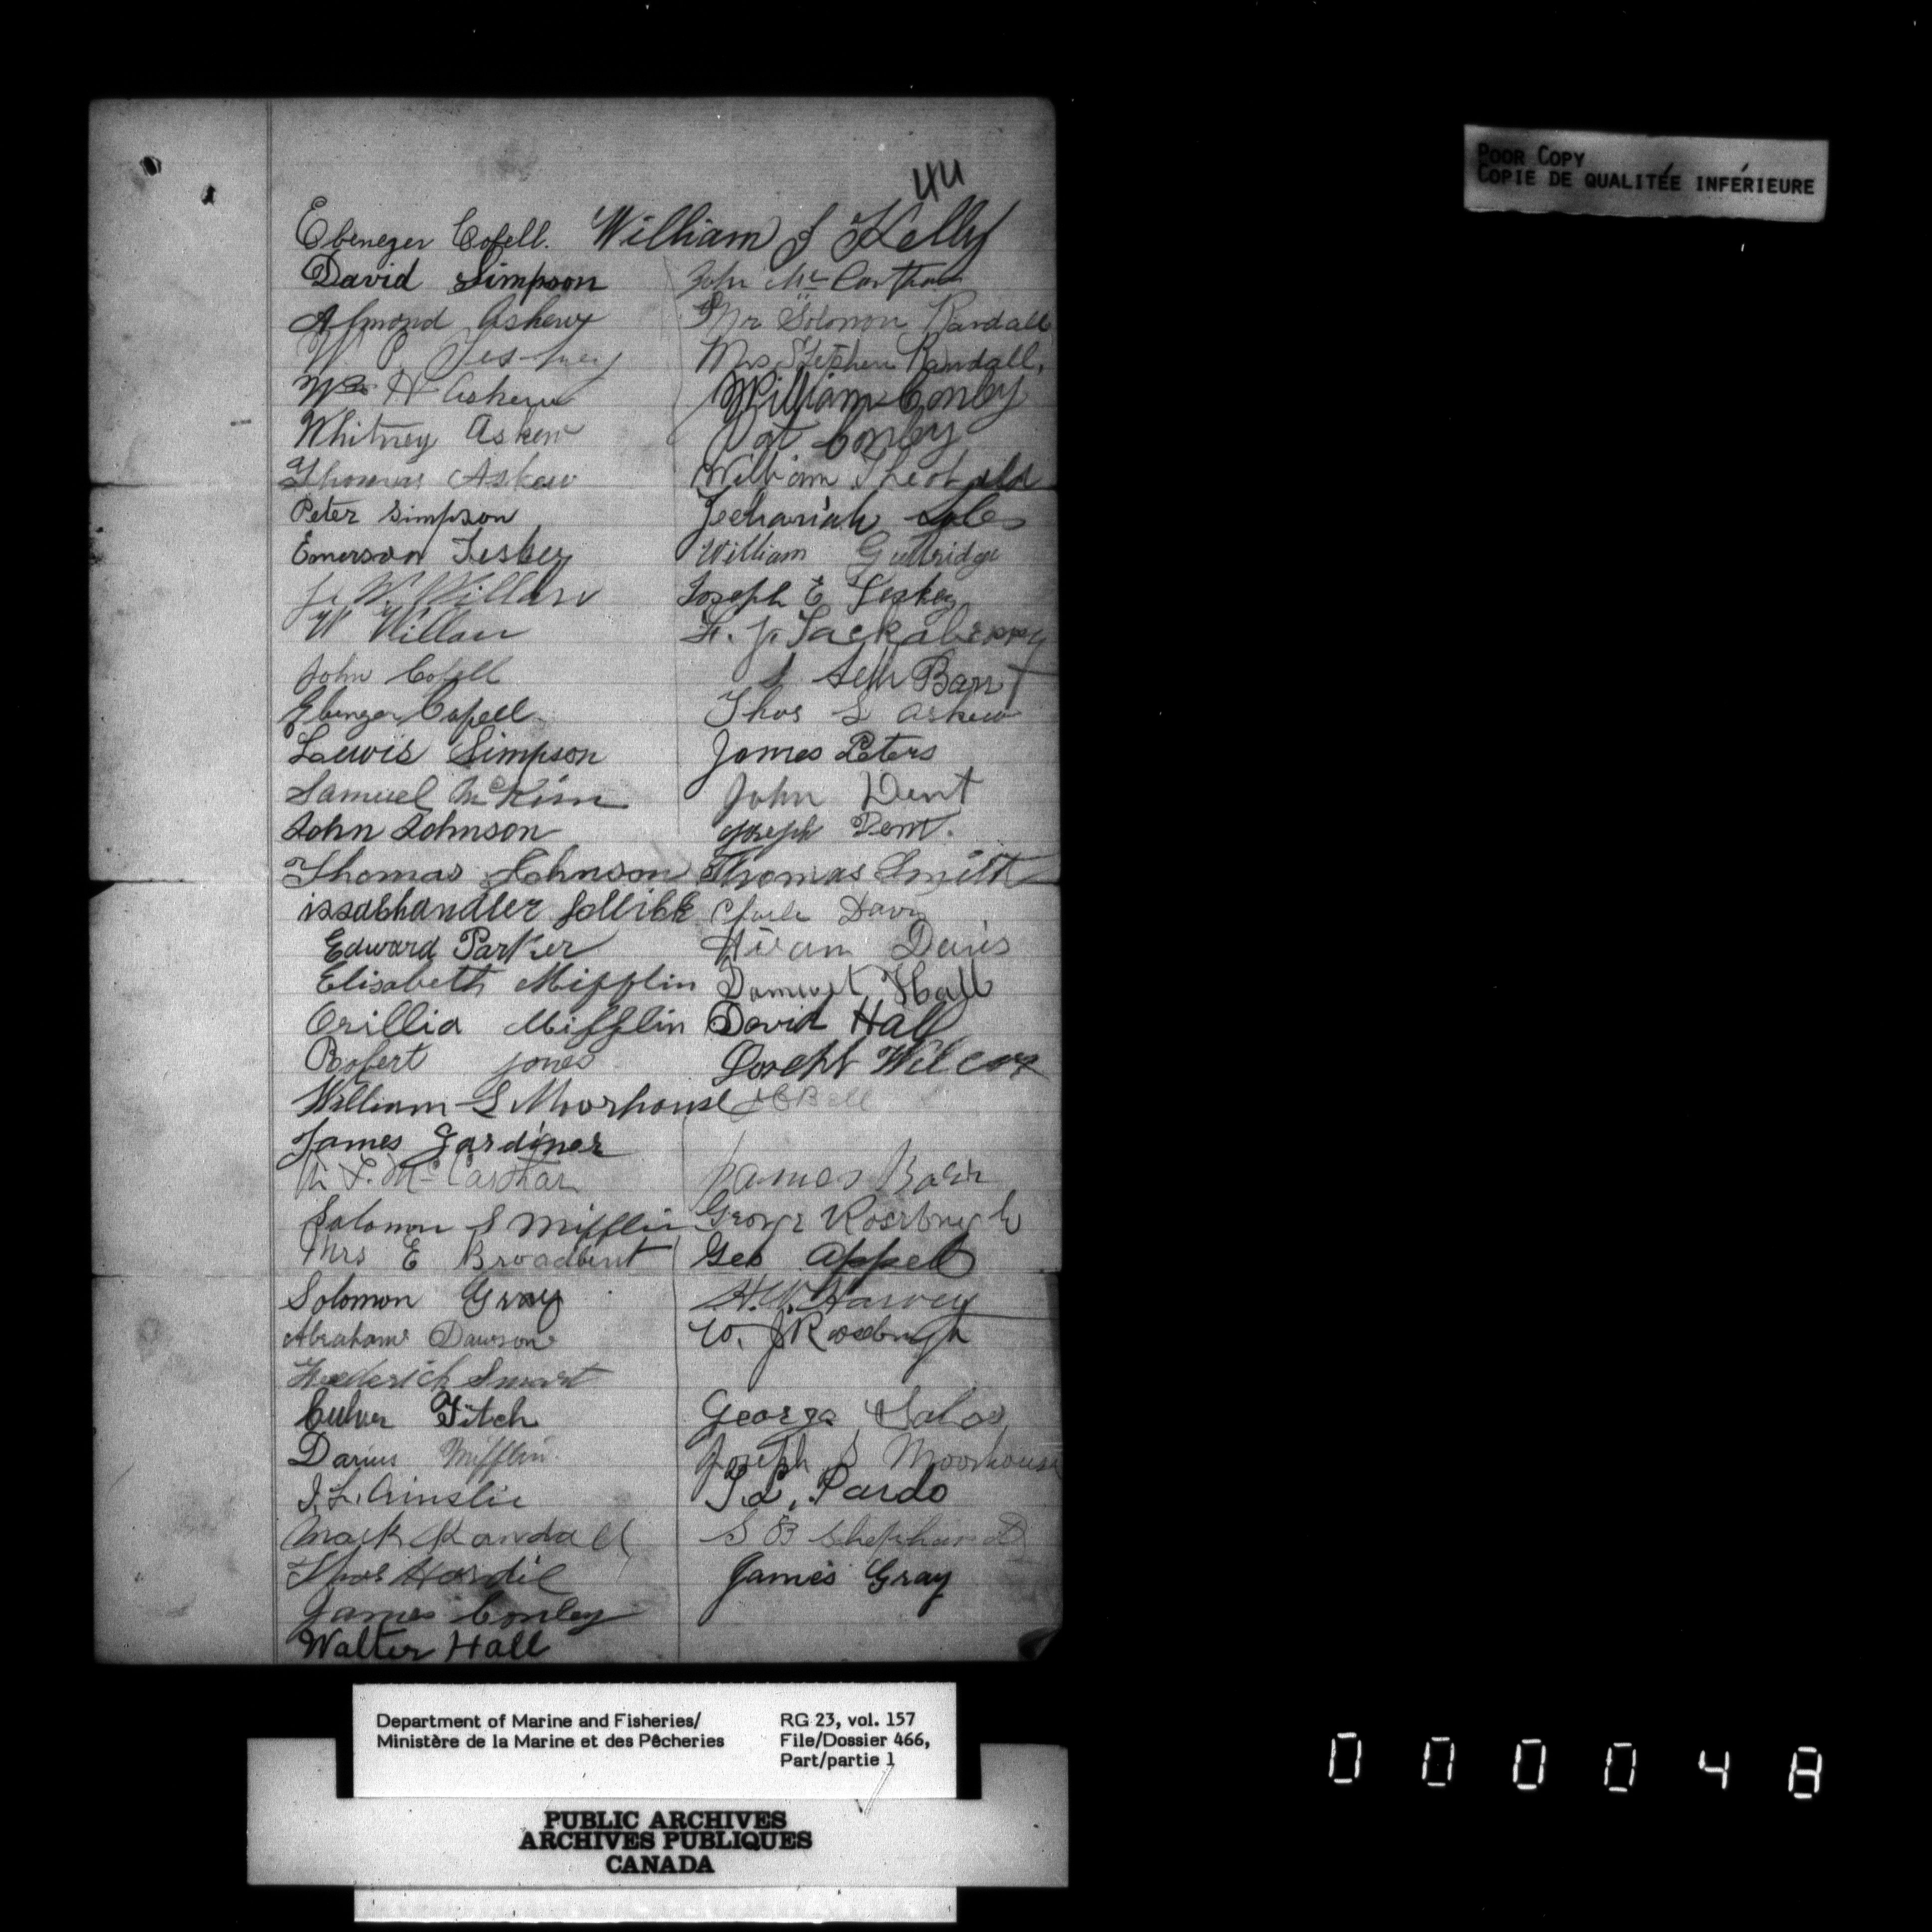 POOR COPY
COPIE DE QUALITÉE INFÉRIEURE
44
Ebenezer Cofell. William J Kelly
David Simpson John Mc Carthar
Almond Askew Mr Solomon Randall
W P. Mrs Stephen Randall.
H Askew William Conley
Whitney Askew Pat Conley
Thomas Askew William Theobald
Peter Simpson Zechariah
Emerson Leskey William Guttridge
W. Willan Joseph E Leskey
W Willan Jackaberry
John Cofell Seth Barr
Ebenezer Cofell Thos S Askew
Lewis Simpson James Peters
Samuel McKim John Dent
John Johnson Joseph Dent.
Thomas Johnson Thomas Smith
Davis
Edward Parker Hiram Davis
Elisabeth Mifflin Hall
Orillia Mifflin David Hall
Robert Jones Wilcox
William S Moorhouse Bell
James Gardiner
Mc Carthar James
Solomon S Mifflin George Rosebrugh
Mrs E Broadbent Geo Appel
Solomon Gray H. W. Harvey
Abraham Dawson W. J Rosebrugh
Frederick Smart
Culver Fitch George
Darius Mifflin Joseph S Moorhouse
J. L. Ainslie T. L. Pardo
Mark Randall S B Shephard
Thos Hardie James Gray
James Conley
Walter Hall
Department of Marine and Fisheries/ RG 23, vol. 157
Ministère de la Marine et des Pêcheries File/Dossier 466,
Part/partie 1
PUBLIC ARCHIVES
ARCHIVES PUBLIQUES
CANADA
000048